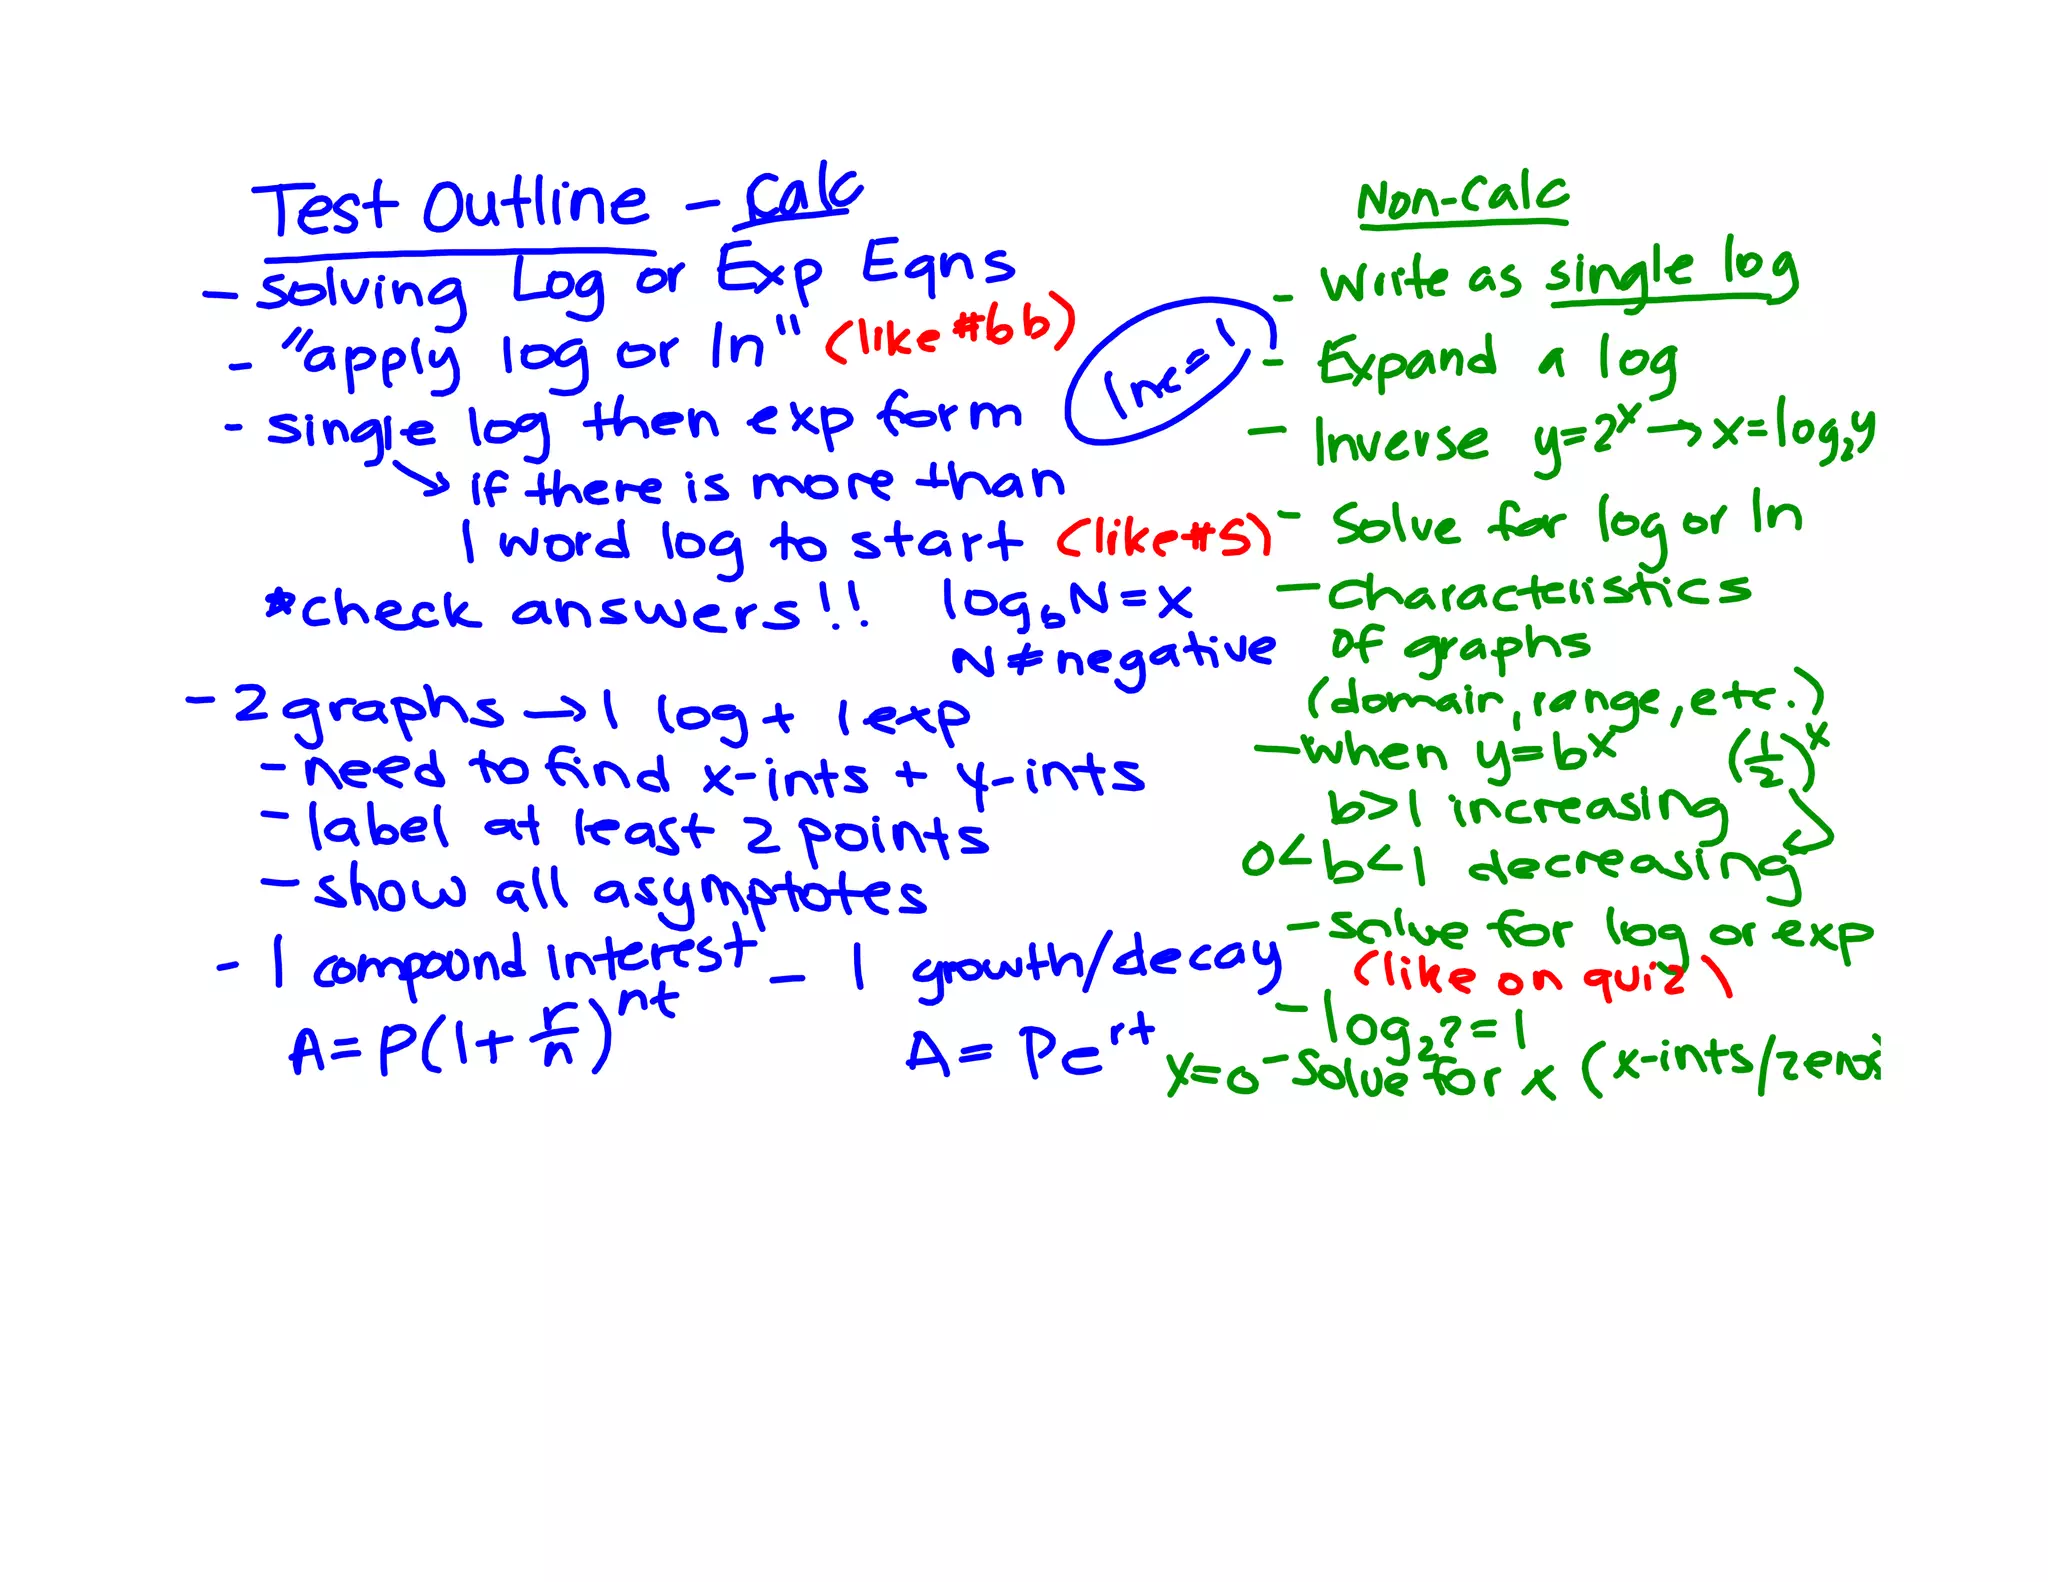 Test Outline - Calc
- solving Log or Exp Eqns
- "apply log or ln" (like #6b)
lne=1
- single log then exp form
→ if there is more than
1 word log to start (like #5)
*check answers!! log_b N=x
N≠negative
- 2 graphs → 1 log + 1 exp
- need to find x-ints + y-ints
- label at least 2 points
- show all asymptotes
- 1 compound interest - 1 growth/decay
A=P(1+r/n)^nt A=Pe^rt
Non-Calc
- Write as single log
- Expand a log
- Inverse y=2^x → x=log_2 y
- Solve for log or ln
- Characteristics
of graphs
(domain, range, etc.)
- when y=b^x (1/2)^x
b>1 increasing
0<b<1 decreasing
- solve for log or exp
(like on quiz)
- log_2 2=1
y=0 - Solve for x (x-ints/zeros